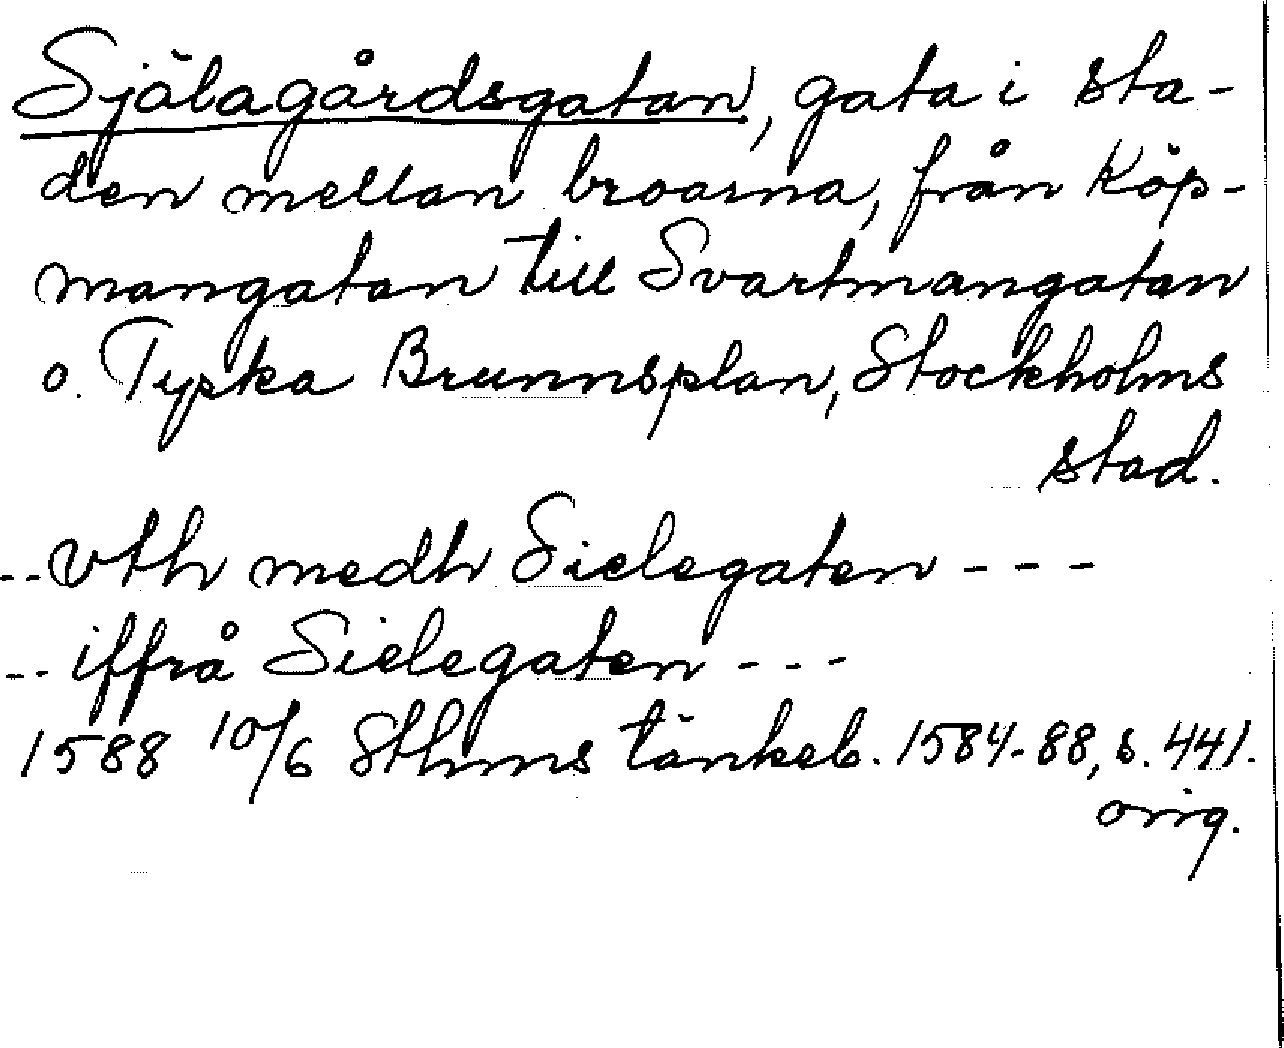 Själagårdsgatan, gata i sta-
den mellan broarna, från Köp-
mangatan till Svartmangatan
o. Tyska Brunnsplan, Stockholms
stad.
-- vth medh Sielegaten ---
-- iffrå Sielegaten ---
1588 10/6 Sthms tänkeb. 1584-88, s. 441.
orig.